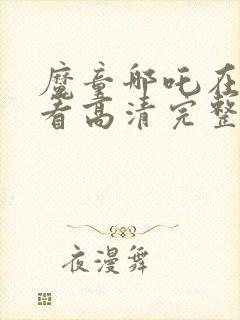 魔童邮吒在
看高清完整
夜漫舞